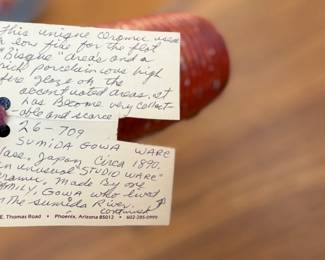 this unique ceramic uses
low fire for the flat
"Bisque" areas and a
porcelainious high
fire glaze on the
accentuated areas. It
has Become very collect-
able and scarce
26-709
SUMIDA GOWA WARE
Vase, Japan, Circa 1890.
an unusual "STUDIO WARE"
ceramic. Made By one
FAMILY, GOWA who lived
on the sumida River.
continued
E. Thomas Road • Phoenix, Arizona 85012 • 602-285-0999